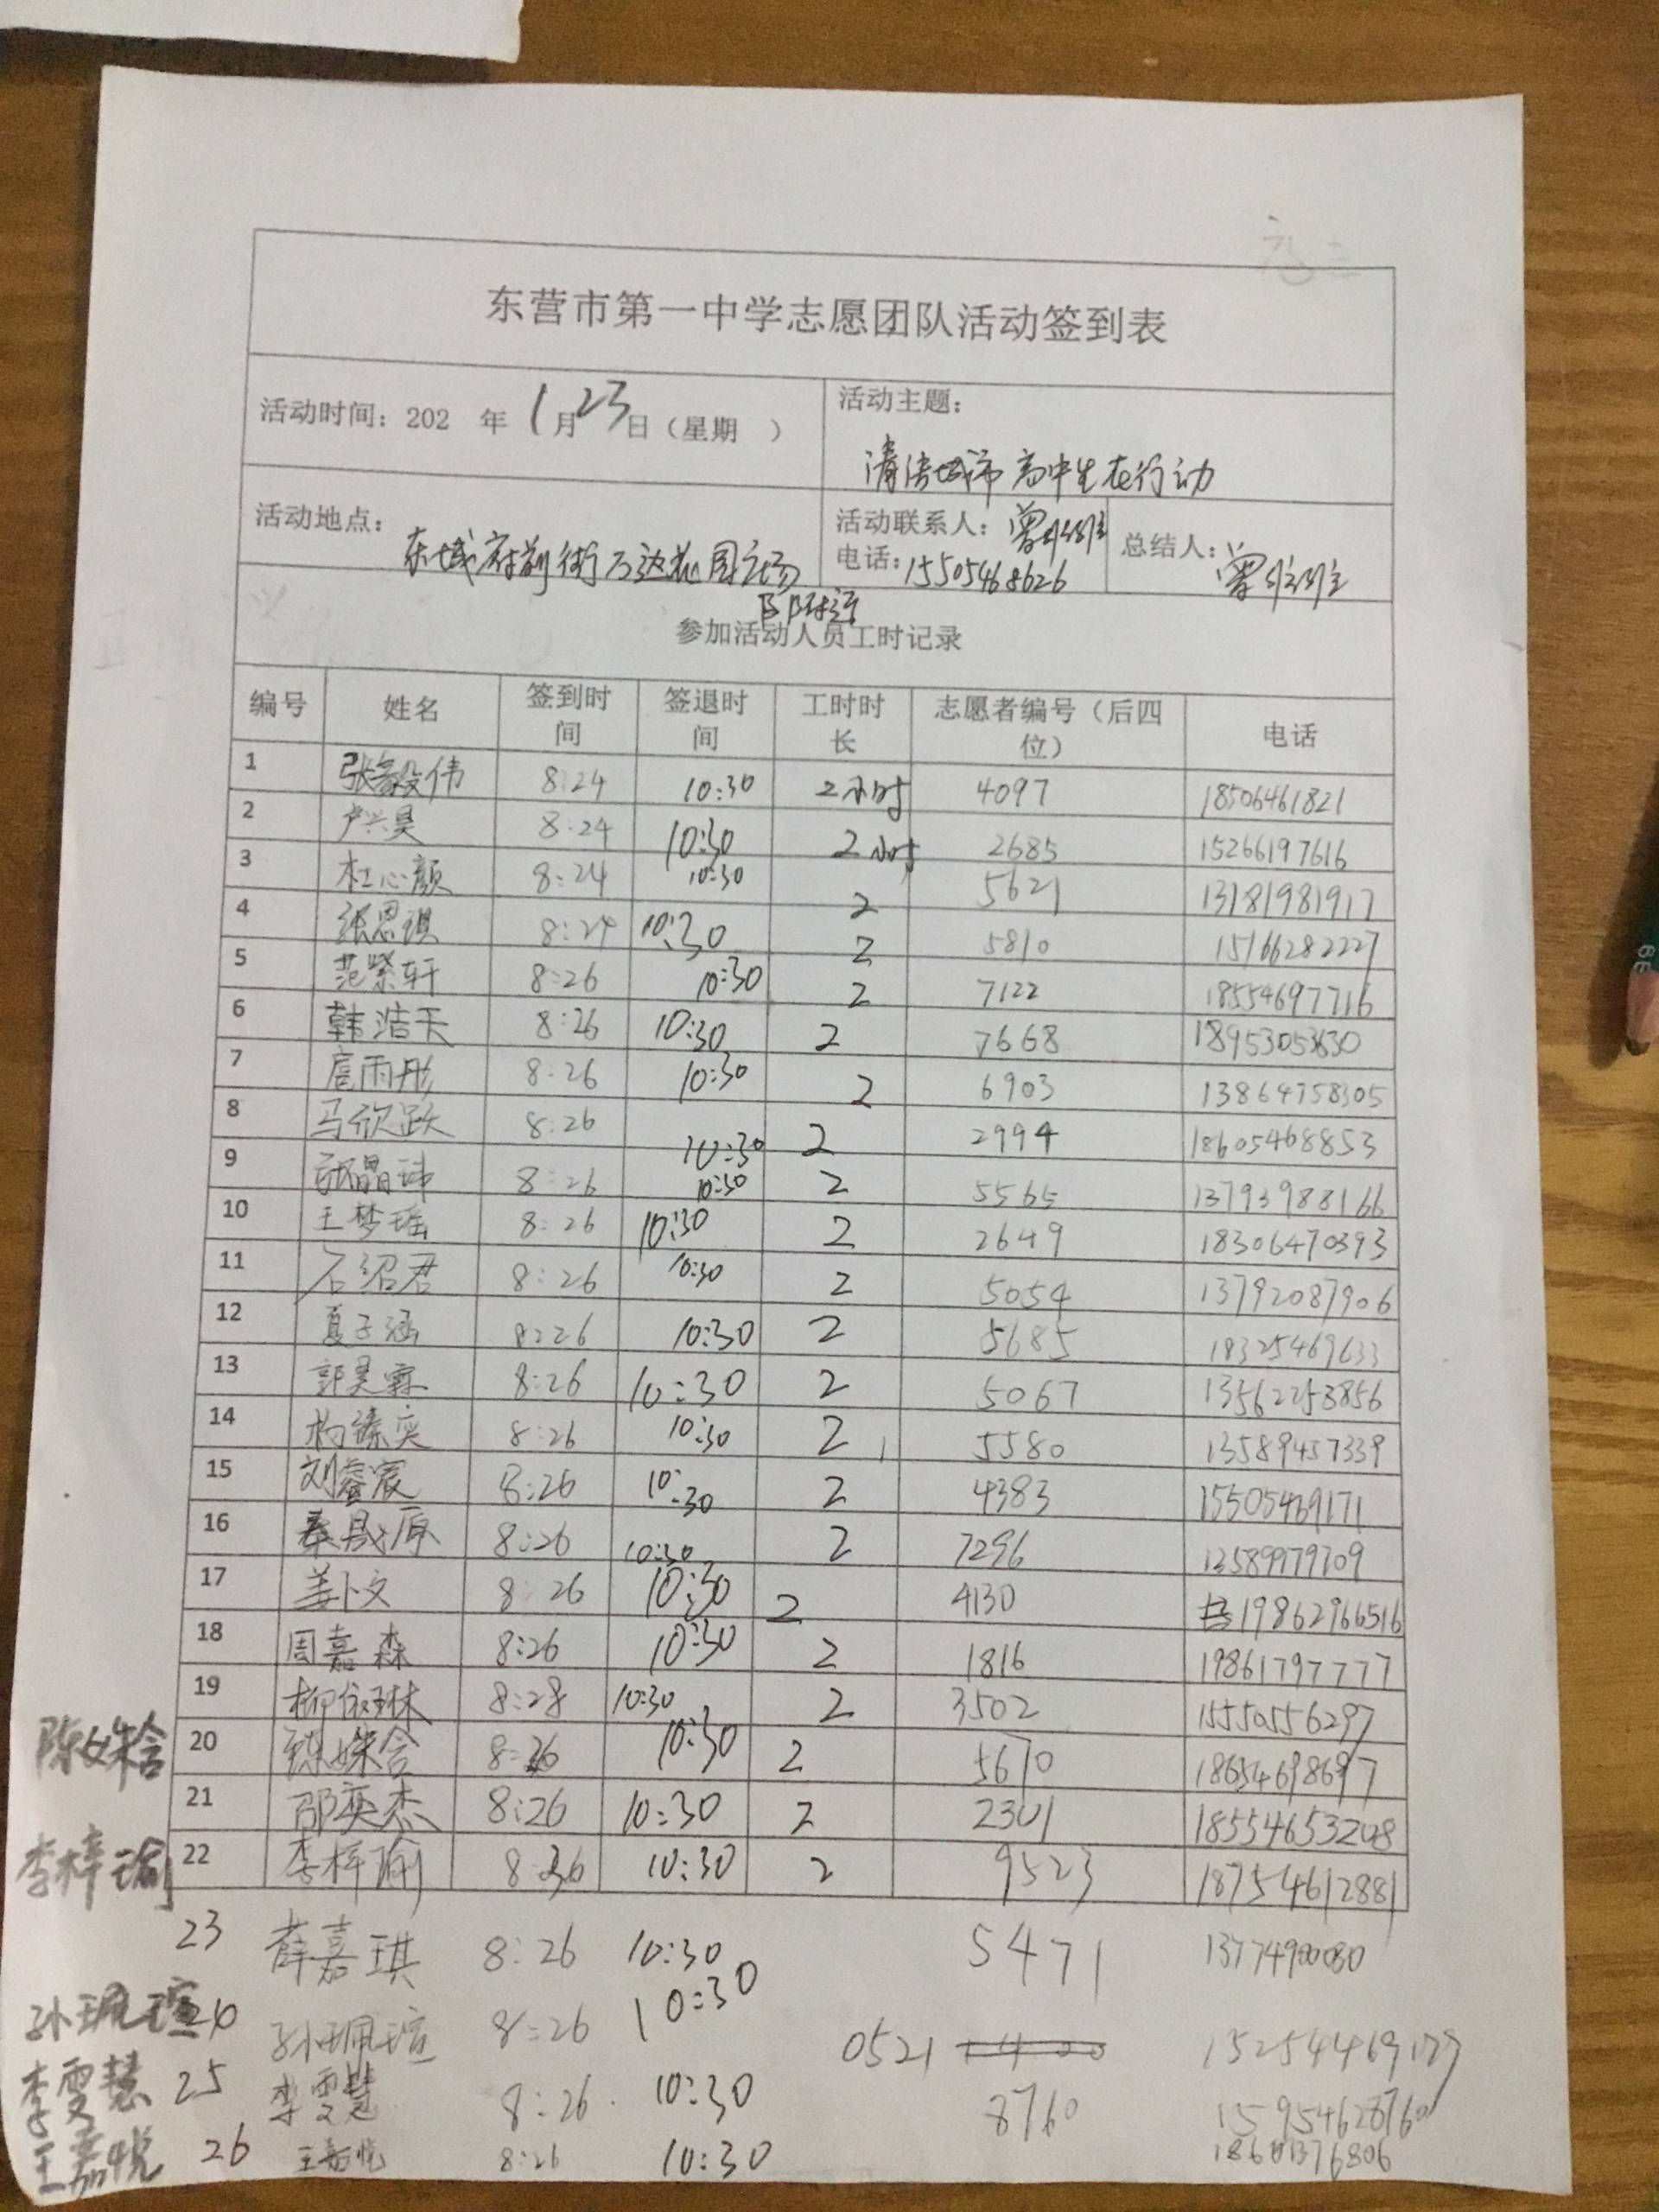 东营市第一中学志愿团队活动签到表
活动时间：202 年 1月23日（星期 ）
活动主题：
清洁城市 高中生在行动
活动地点：
东城府前街万达花园广场
附近
活动联系人：曾
电话：15505468626
总结人：曾
参加活动人员工时记录
编号 姓名 签到时间 签退时间 工时时长 志愿者编号（后四位） 电话
1 张毅伟 8:24 10:30 2小时 4097 18506461821
2 卢兴昊 8:24 10:30 2小时 2685 15266197616
3 杜心颜 8:24 10:30 2 5621 13181981917
4 张思琪 8:24 10:30 2 5810 15166282227
5 范紫轩 8:26 10:30 2 7122 18554697716
6 韩浩天 8:26 10:30 2 7668
7 扈雨彤 8:26 10:30 2 6903 13864758305
8 马欣跃 8:26 10:30 2 2994 18605468853
9 张晶玮 8:26 10:30 2 5565 13793988166
10 王梦瑶 8:26 10:30 2 2649 18306470393
11 石绍君 8:26 10:30 2 5054 13792087906
12 夏子涵 8:26 10:30 2 5685 18325469633
13 郭昊霖 8:26 10:30 2 5067 13562253856
14 杨臻奕 8:26 10:30 2 5580 13589457339
15 刘睿宸 8:26 10:30 2 4383 15505469171
16 秦晟源 8:26 10:30 2 7296 13589979709
17 姜卜文 8:26 10:30 2 4130 19862966516
18 周嘉森 8:26 10:30 2 1816 19861797777
19 柳依琳 8:28 10:30 2 3502 15550556297
陈姝含 20 陈姝含 8:26 10:30 2 5670 18654698697
21 邵奕杰 8:26 10:30 2 2301 18554653208
李梓瑜 22 李梓瑜 8:36 10:30 2 9523 18754612881
23 薛嘉琪 8:26 10:30 5471 13774900080
孙珮瑄 24 孙珮瑄 8:26 10:30 0521
李雯慧 25 李雯慧 8:26 10:30 8760 15954628760
王嘉悦 26 王嘉悦 8:26 10:30 18601376806